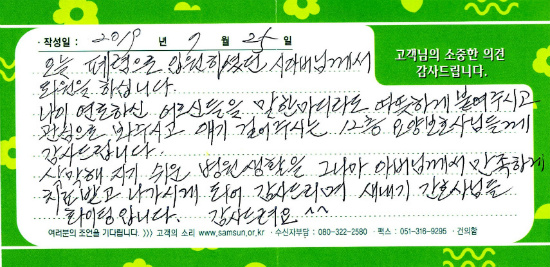 · 작성일 : 2019 년 7 월 25 일
고객님의 소중한 의견
감사드립니다.
오늘 폐렴으로 입원하셨던 시아버님께서
퇴원을 하십니다.
나이 연로하신 어르신들을 말한마디라도 따뜻하게 붙여주시고
관심으로 봐주시고 얘기 걸어주시는 12층 요양보호사님들께
감사드립니다.
삭막해 지기 쉬운 병원생활을 그나마 아버님께서 만족하게
치료받고 나가시게 되어 감사드리며 새내기 간호사님들
화이팅입니다. 감사드려요 ^^
여러분의 조언을 기다립니다. >>> 고객의 소리 www.samsun.or.kr · 수신자부담 : 080-322-2580 · 팩스 : 051-316-9295 · 건의함